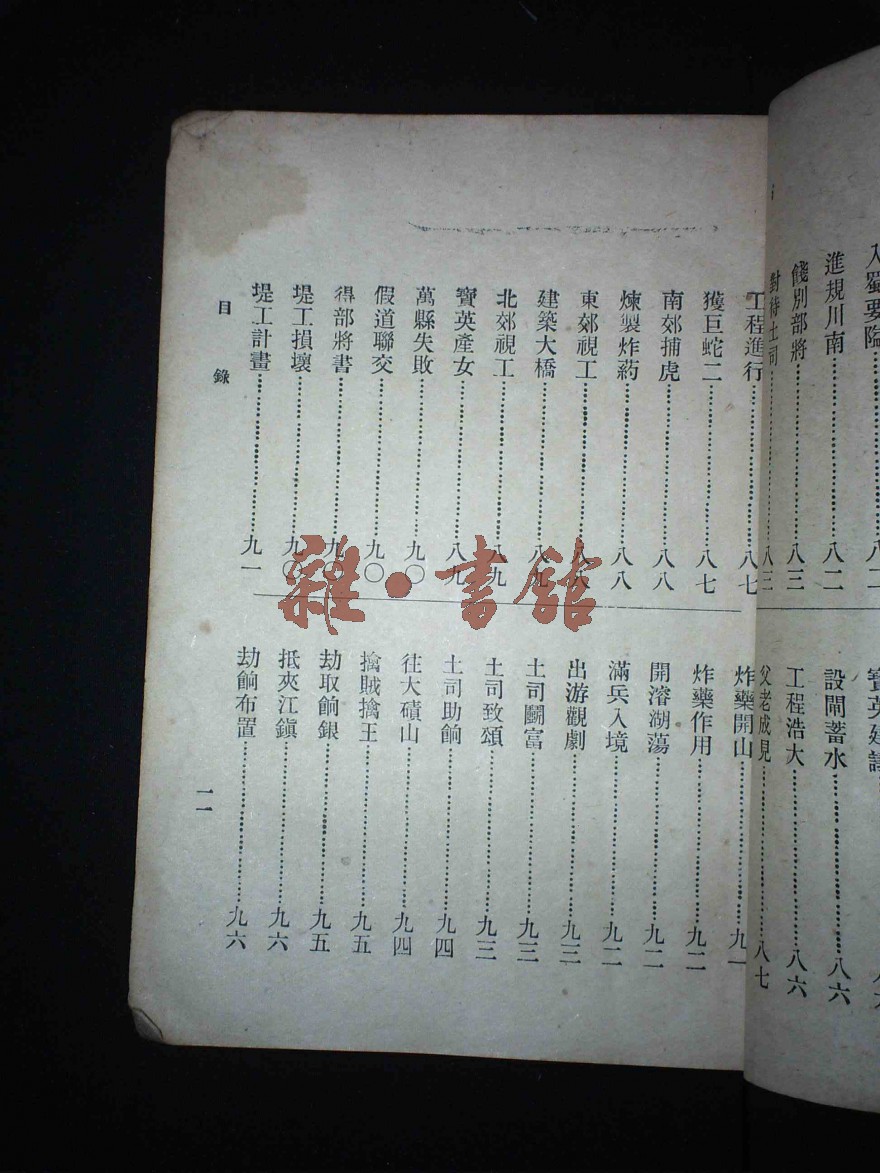 進規川南……八二
餞別部將……八三
對待土司……八三
設閘蓄水……八六
工程浩大……八六
父老成見……八七
工程進行……八七
獲巨蛇二……八七
南郊捕虎……八八
煉製炸药……八八
東郊視工……八八
建築大橋……八九
北郊視工……八九
寶英產女……八九
萬縣失敗……九〇
假道聯交……九〇
得部將書……九〇
堤工損壞……九〇
堤工計畫……九一
炸藥開山……九一
炸藥作用……九二
開溶湖蕩……九二
滿兵入境……九二
出游觀劇……九三
土司鬭富……九三
土司致頌……九三
土司助餉……九四
往大磧山……九四
擒賊擒王……九五
劫取餉銀……九五
抵夾江鎮……九六
劫餉布置……九六
目錄
一一
雜·書館